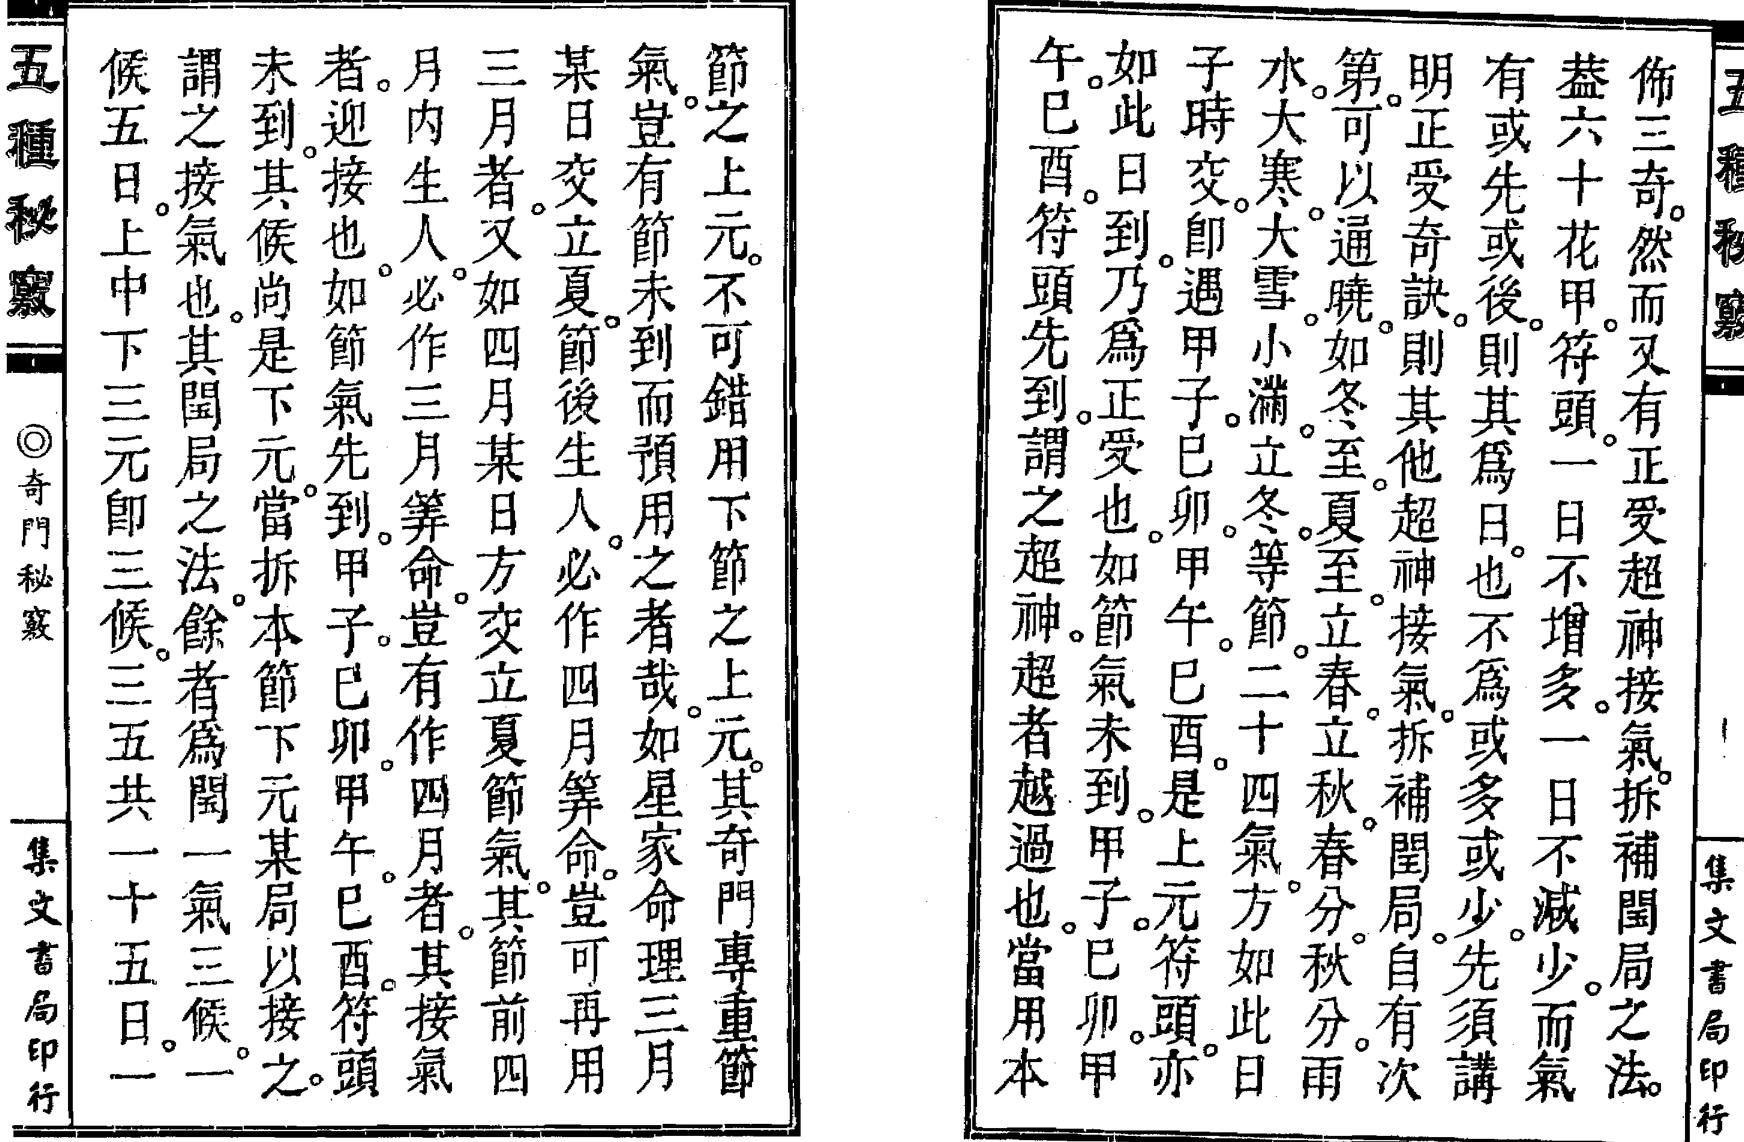 五種秘竅
集文書局印行
佈三奇。然而又有正受超神接氣。拆補閏局之法。
葢六十花甲。符頭。一日不增多。一日不減少。而氣
有或先或後。則其爲日。也不爲或多或少。先須講
明正受奇訣。則其他超神接氣。拆補閏局。自有次
第。可以通曉。如冬至。夏至。立春。立秋。春分。秋分。雨
水。大寒。大雪。小滿。立冬。等節。二十四氣。方如此日
子時交。卽遇甲子。巳卯。甲午。巳酉。是上元符頭。亦
如此日到。乃爲正受也。如節氣未到。甲子。巳卯。甲
午。巳酉。符頭先到。謂之超神。超者越過也。當用本
節之上元。不可錯用下節之上元。其奇門專重節
氣。豈有節未到而預用之者哉。如星家命理三月
某日交立夏。節後生人。必作四月筭命。豈可再用
三月者。又如四月某日方交立夏節氣。其節前四
月內生人。必作三月筭命。豈有作四月者。其接氣
者。迎接也。如節氣先到。甲子。巳卯。甲午。巳酉。符頭
未到。其候尚是下元。當拆本節下元某局以接之。
謂之接氣也。其閏局之法。餘者爲閏一氣三候。一
候五日。上中下三元卽三候。三五共一十五日。一
五種秘竅
◎奇門秘竅
集文書局印行